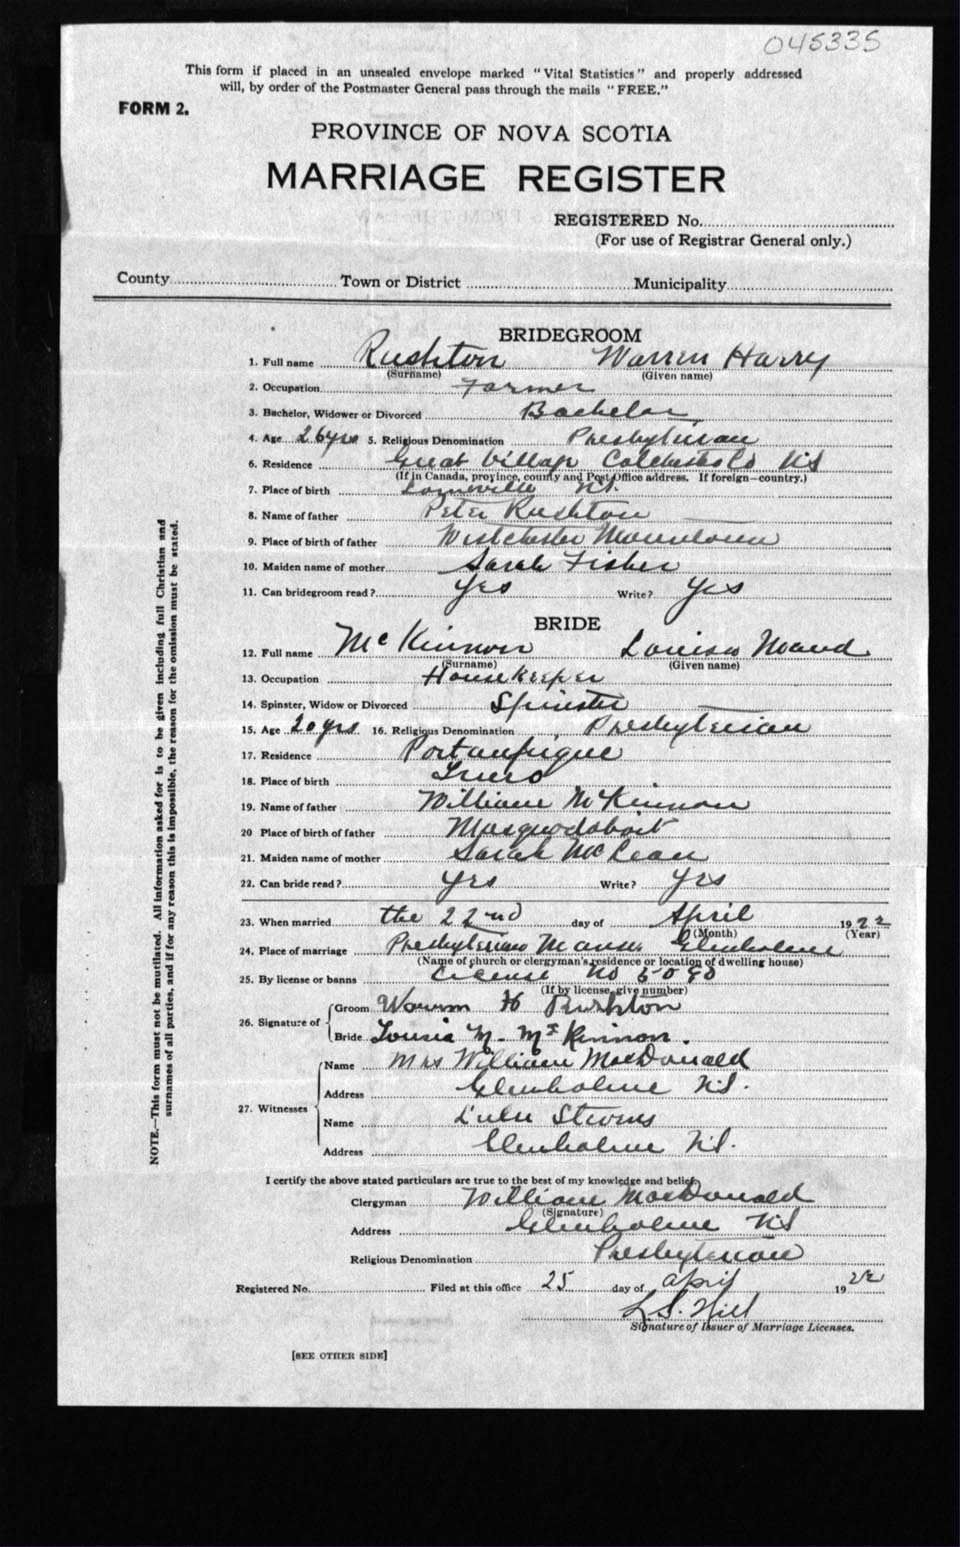 045335
This form if placed in an unsealed envelope marked "Vital Statistics" and properly addressed
will, by order of the Postmaster General pass through the mails "FREE."
FORM 2.
PROVINCE OF NOVA SCOTIA
MARRIAGE REGISTER
REGISTERED No.
(For use of Registrar General only.)
County Town or District Municipality
BRIDEGROOM
1. Full name Rushton Warren Harry
(Surname) (Given name)
2. Occupation Farmer
3. Bachelor, Widower or Divorced Bachelor
4. Age 26 yrs 5. Religious Denomination Presbyterian
6. Residence Great Village Colchester Co NS
(If in Canada, province, county and Post Office address. If foreign—country.)
7. Place of birth Lornville NS.
8. Name of father Peter Rushton
9. Place of birth of father Westchester Mountain
10. Maiden name of mother Sarah Fisher
11. Can bridegroom read? Yes Write? Yes
BRIDE
12. Full name McKinnon Louisa Maud
(Surname) (Given name)
13. Occupation Housekeeper
14. Spinster, Widow or Divorced Spinster
15. Age 20 yrs 16. Religious Denomination Presbyterian
17. Residence Portaupique
18. Place of birth Truro
19. Name of father William McKinnon
20 Place of birth of father Musquodoboit
21. Maiden name of mother Sarah McLean
22. Can bride read? Yrs Write? Yrs
23. When married the 22nd day of April 1922
(Month) (Year)
24. Place of marriage Presbyterian Manse Glenholme
(Name of church or clergyman's residence or location of dwelling house)
25. By license or banns License No 5090
(If by license, give number)
26. Signature of Groom Warren H Rushton
Bride Louisa M. McKinnon.
27. Witnesses Name Mrs William MacDonald
Address Glenholme N.S.
Name Lulu Stevens
Address Glenholme N.S.
I certify the above stated particulars are true to the best of my knowledge and belief.
Clergyman William MacDonald
(Signature)
Address Glenholme NS
Religious Denomination Presbyterian
Registered No. Filed at this office 25 day of April 1922
L. S. Hill
Signature of Issuer of Marriage Licenses.
[SEE OTHER SIDE]
NOTE.—This form must not be mutilated. All information asked for is to be given including full Christian and
surnames of all parties, and if for any reason this is impossible, the reason for the omission must be stated.